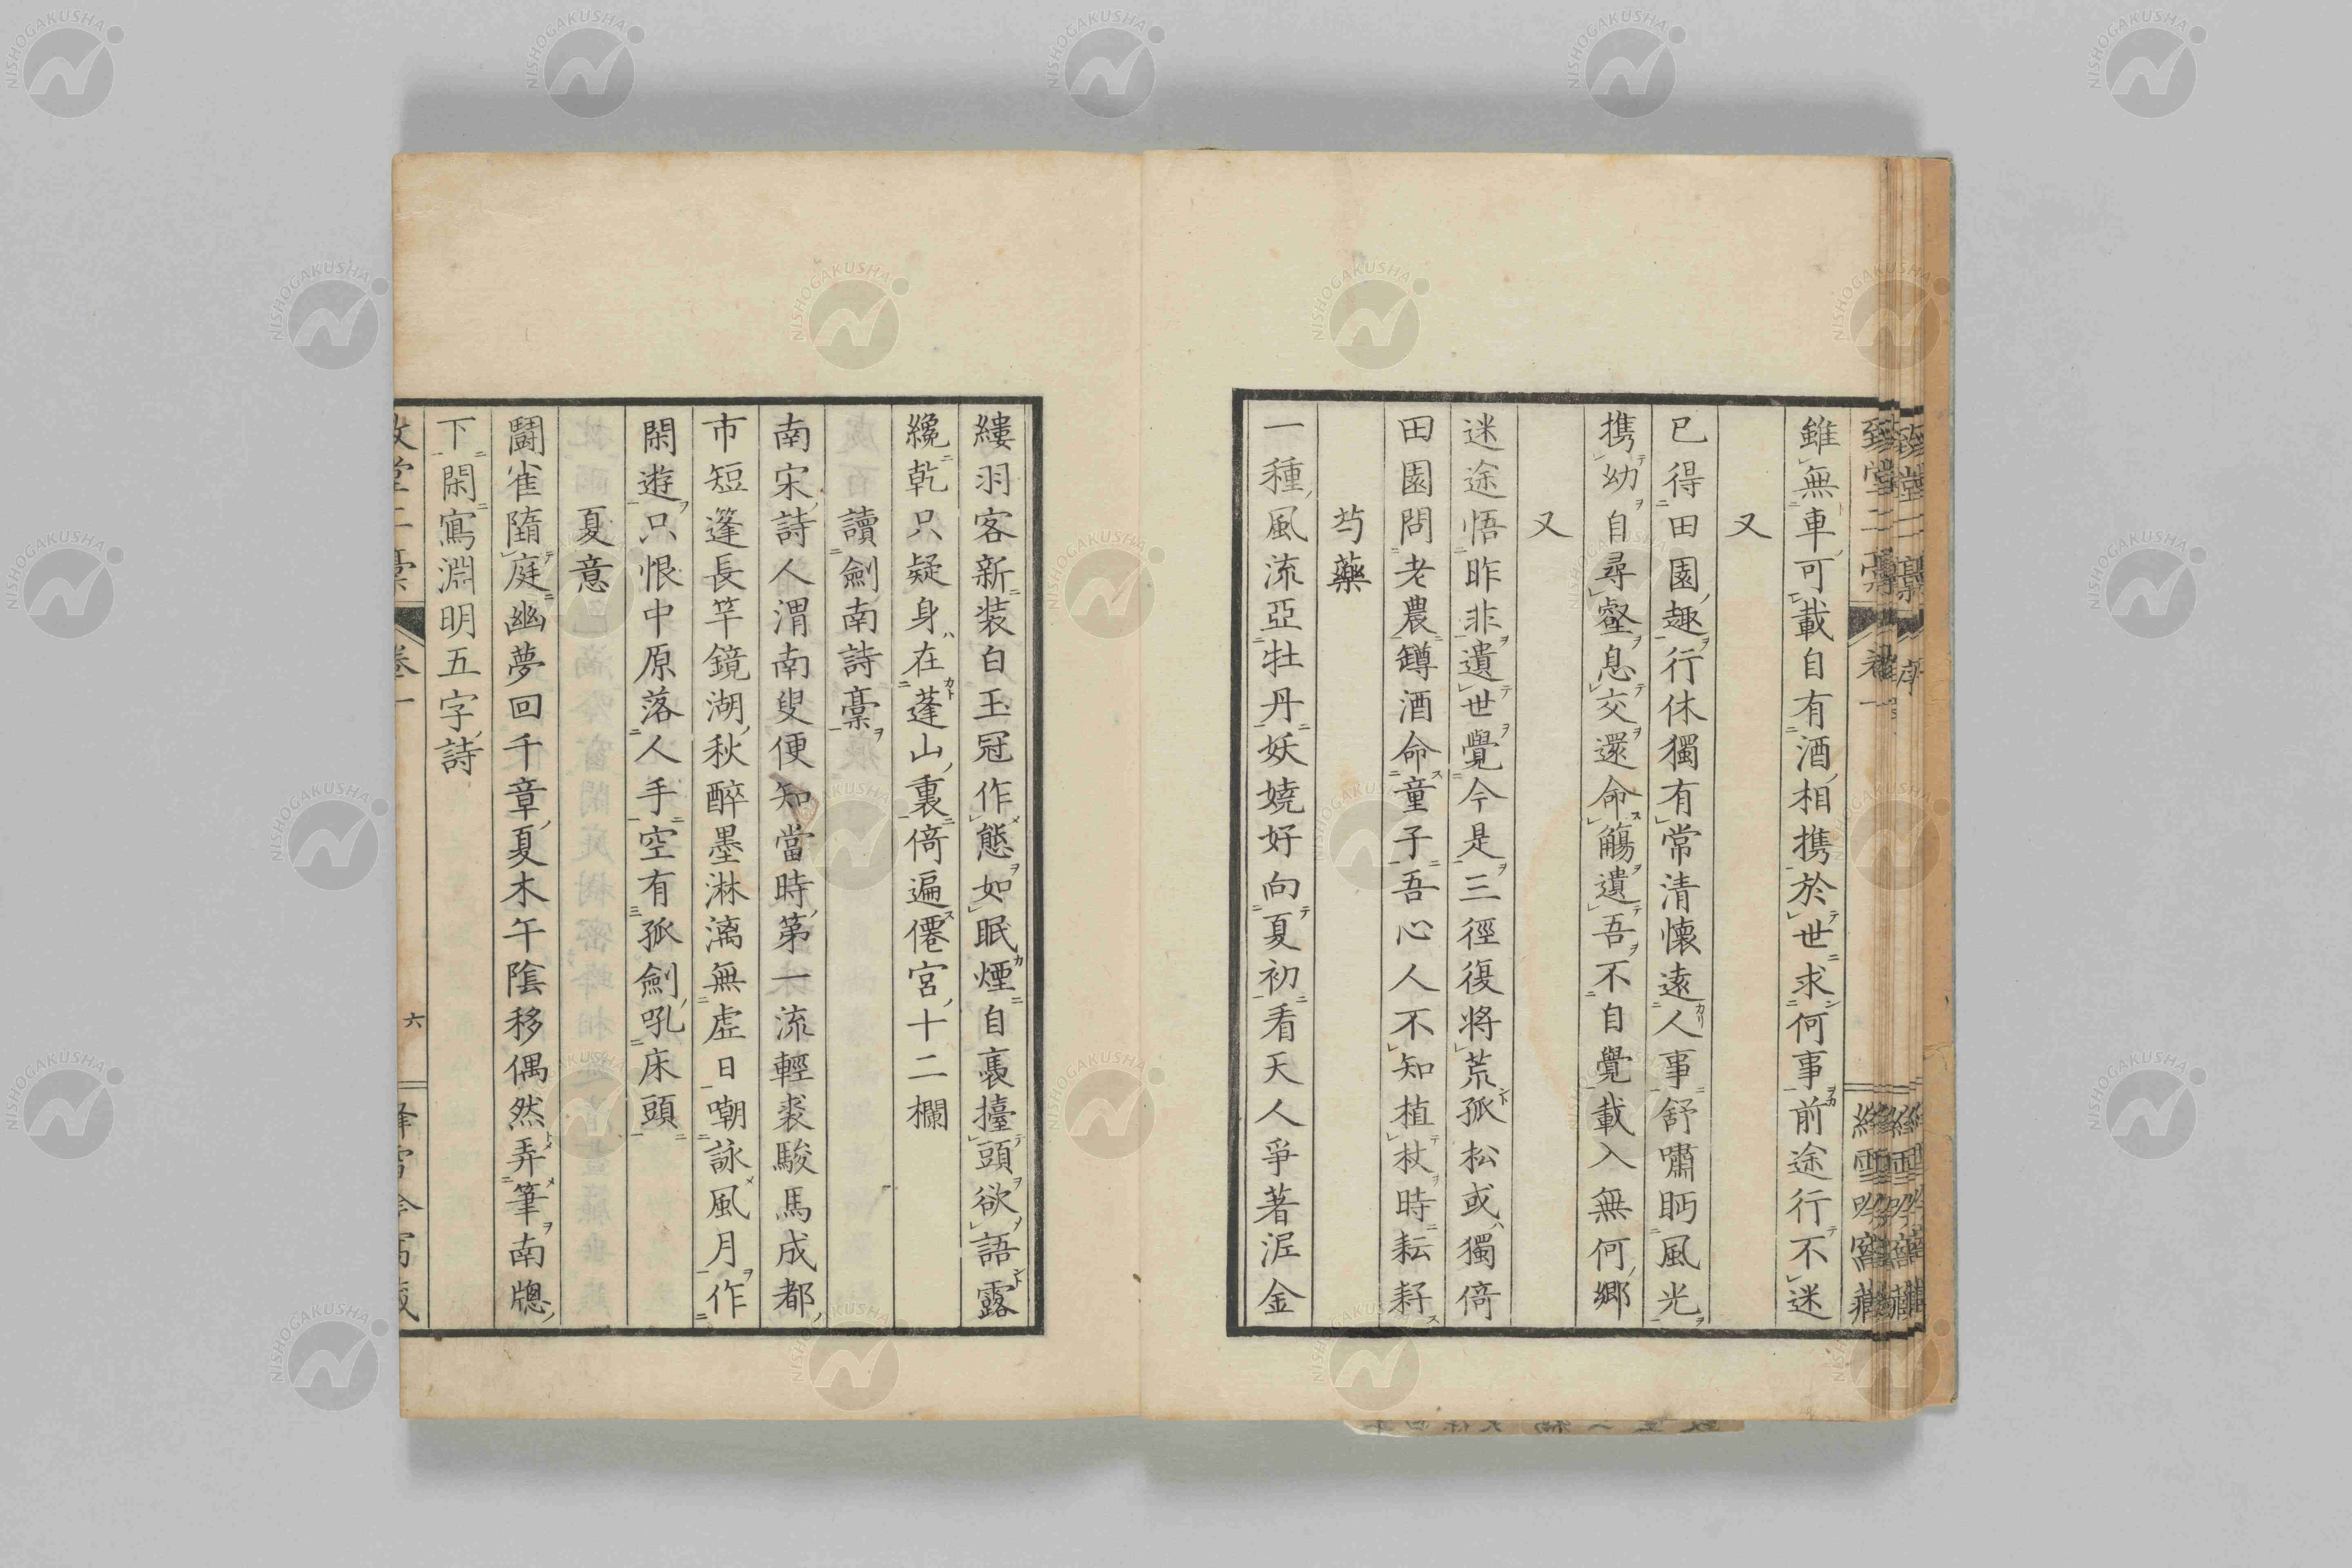 雖無車可載自有酒相携於世求何事前途行不迷
又
已得田園趣行休獨有常清懷遠人事舒嘯眄風光
携幼自尋壑息交還命觴遺吾不自覺載入無何鄉
又
迷途悟昨非遺世覺今是三徑復將荒孤松或獨倚
田園問老農罇酒命童子吾心人不知植杖時耘耔
芍藥
一種風流亞牡丹妖嬈好向夏初看天人爭著泥金
縷羽客新装白玉冠作態如眠煙自裛擡頭欲語露
纔乾只疑身在蓬山裏倚遍僊宮十二欄
讀劍南詩藁
南宋詩人渭南叟便知當時第一流輕裘駿馬成都
市短篷長竿鏡湖秋醉墨淋漓無虛日嘲詠風月作
閑遊只恨中原落人手空有孤劍吼床頭
夏意
鬪雀隨庭幽夢回千章夏木午陰移偶然弄筆南牕
下閑寫淵明五字詩
六
NISHOGAKUSHA